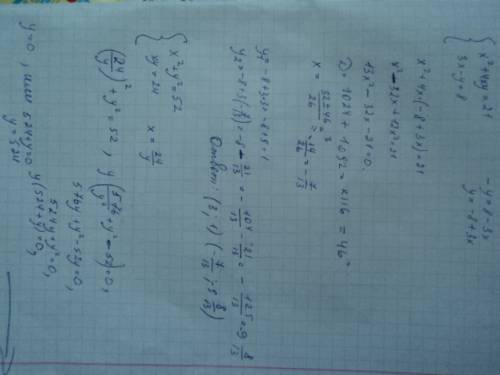 x²+4xy=21
3x-y=8
-y=8-3x
y=-8+3x
x²+4x(-8+3x)=21
x²-32x+12x²=21
13x²-32x-21=0
D=1024+1092=2116=46²
x=\frac{32±46}{26}=3 =-\frac{14}{26}=-\frac{7}{13}
y₁=-8+3·3=-8+9=1
y₂=-8+3·(-\frac{7}{13})=-8-\frac{21}{13}=-\frac{104}{13}-\frac{21}{13}=-\frac{125}{13}=-9\frac{8}{13}
Ответ: (3;1) (-\frac{7}{13};-9\frac{8}{13})
x²+y²=52
xy=24 x=\frac{24}{y}
(\frac{24}{y})²+y²=52, y(\frac{576}{y²}+y²-52)=0,
576y+y²-52y=0,
524y+y²=0,
y(524+y)=0,
y=0, или 524+y=0
y=524